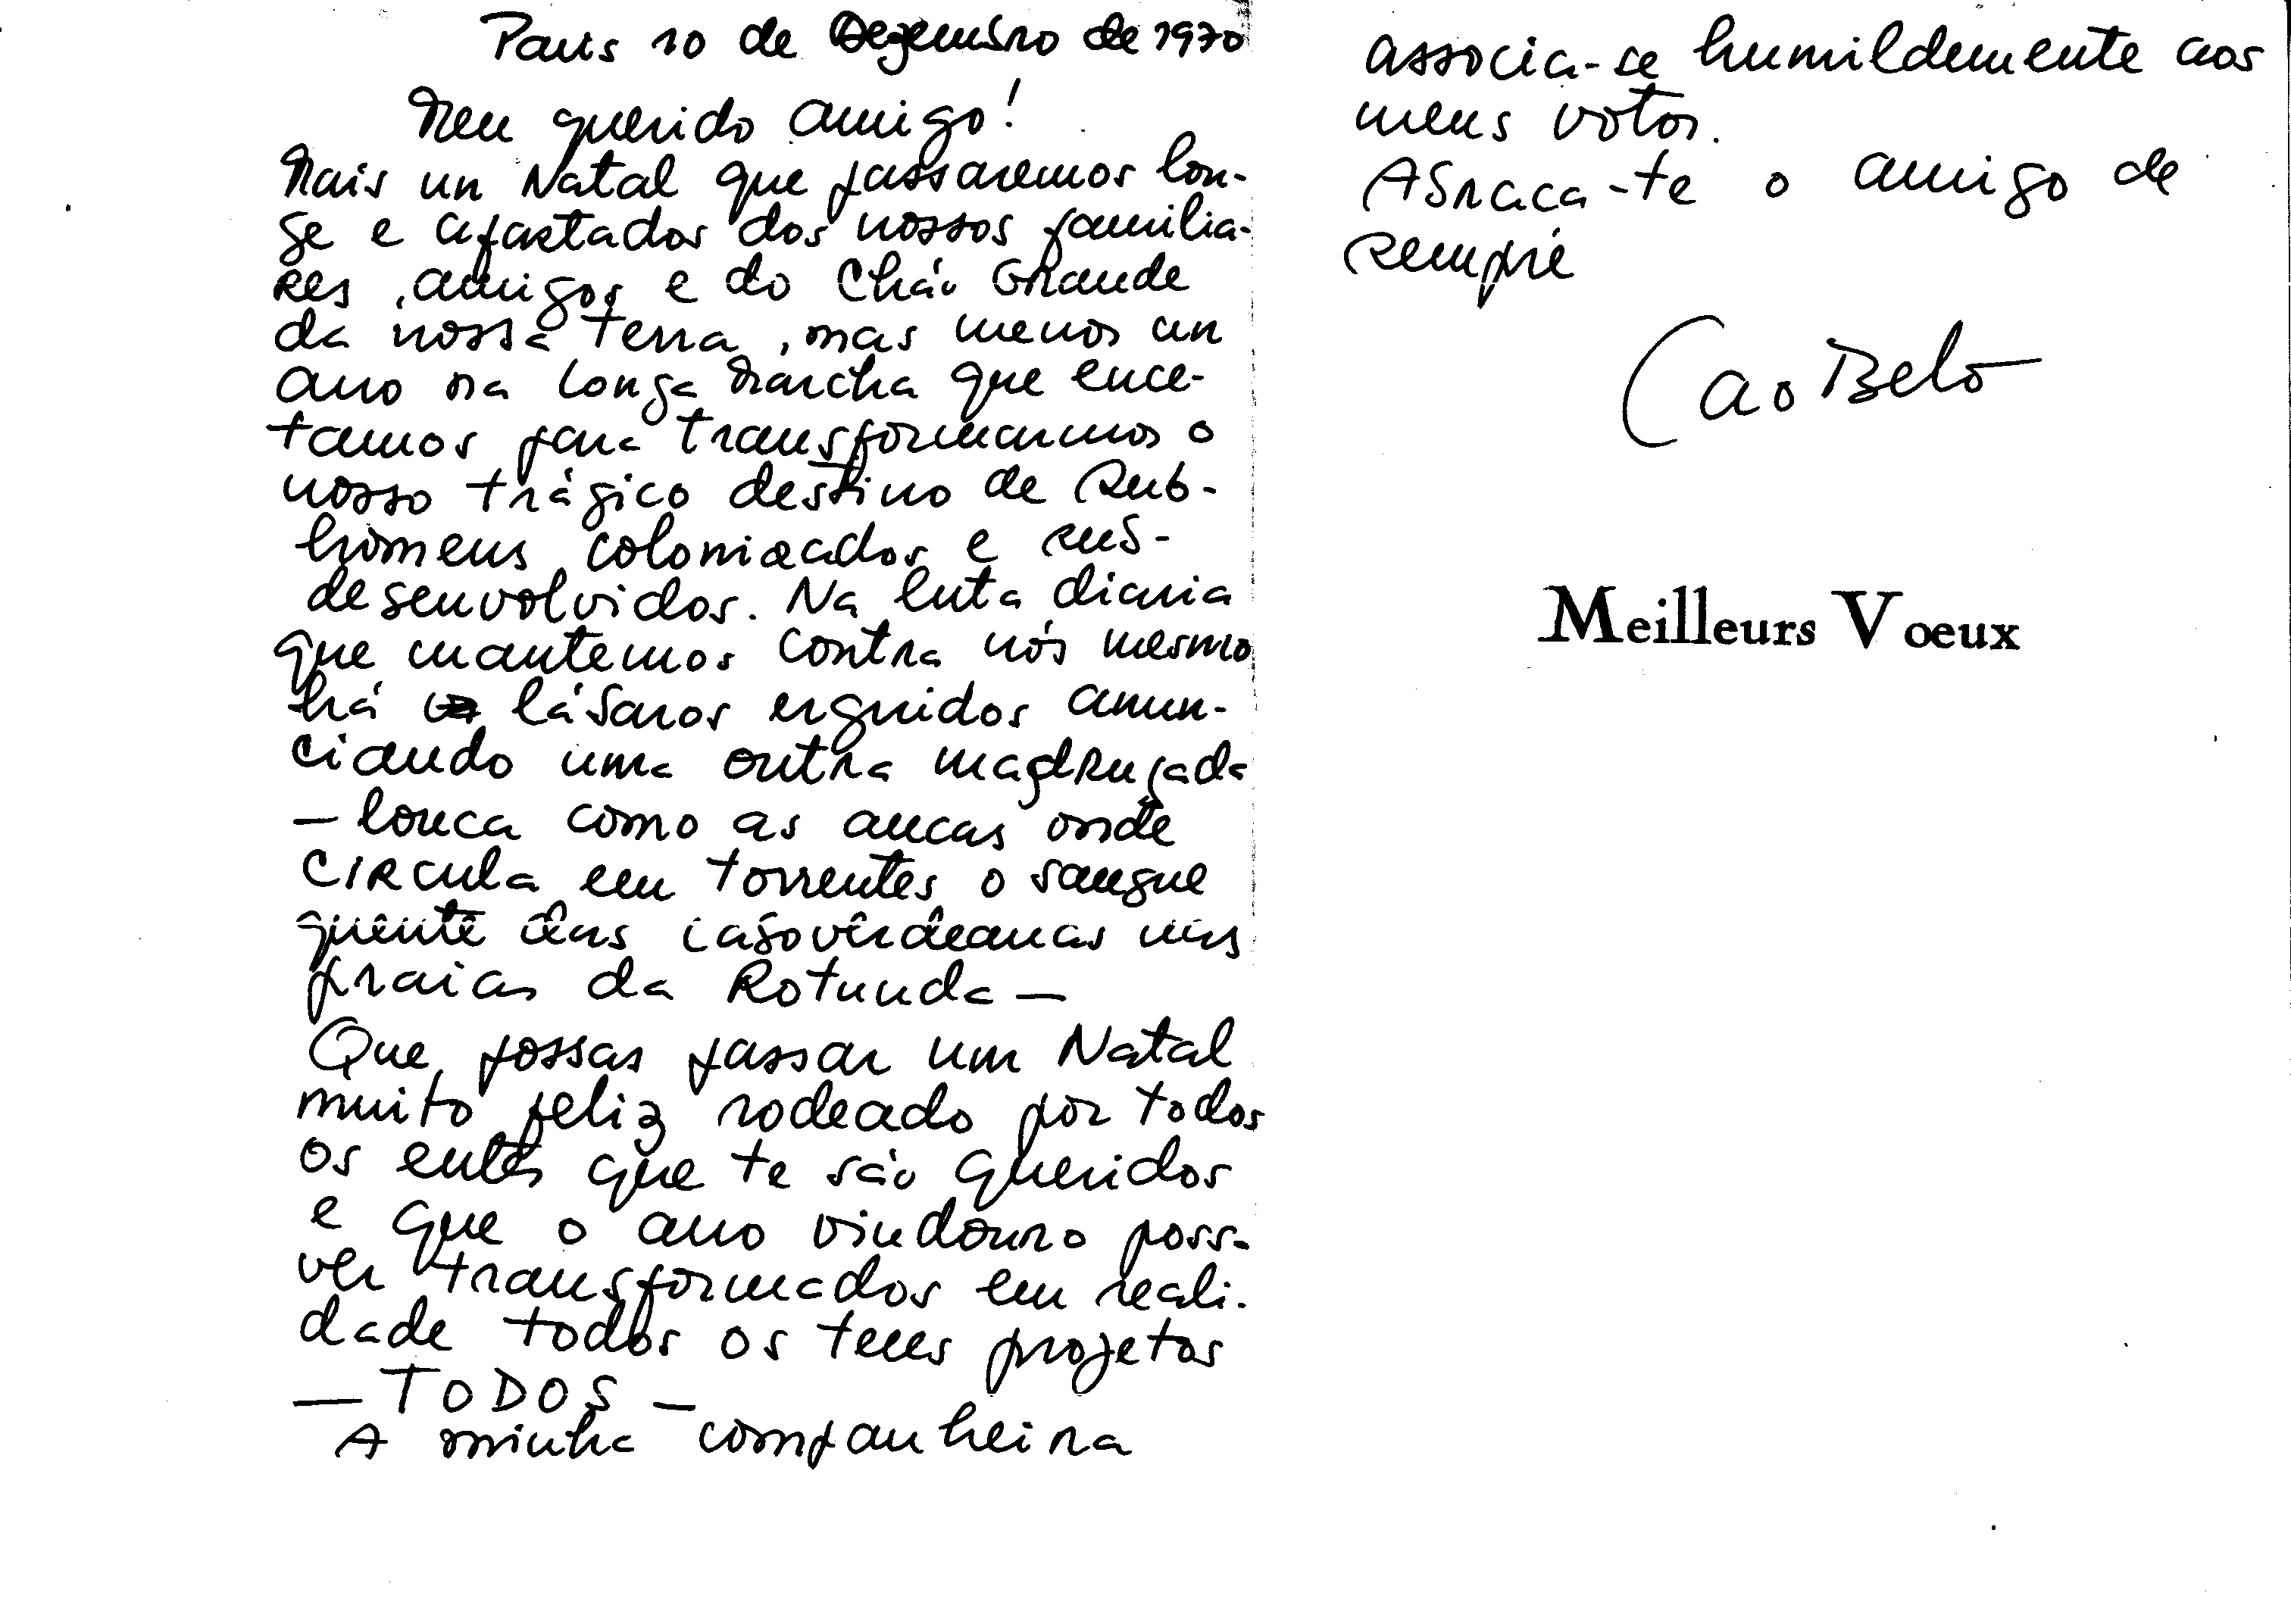 Paris 10 de Dezembro de 1970
Meu querido amigo!
Mais un Natal que passaremos lon-
ge e afastados dos nossos familia-
res, amigos e do Chão Grande
da nossa terra, mas menos un
ano na Longa Marcha que ence-
tamos para transformarmos o
nosso trágico destino de sub-
homens colonizados e sub-
desenvolvidos. Na luta diaria
que mantemos contra nós mesmo
há lásaros erguidos anun-
ciando uma outra madrugada
— louca como as ancas onde
circula em torrentes o sangue
quente das caboverdeanas nas
praias da Rotunda —
Que possas passar um Natal
muito feliz rodeado por todos
os entes que te são queridos
e que o ano vindouro possa
ver transformados em reali-
dade todos os teus projetos
— TODOS —
A minha companheira
associa-se humildemente aos
meus votos.
Abraca-te o amigo de
sempre
Meilleurs Voeux